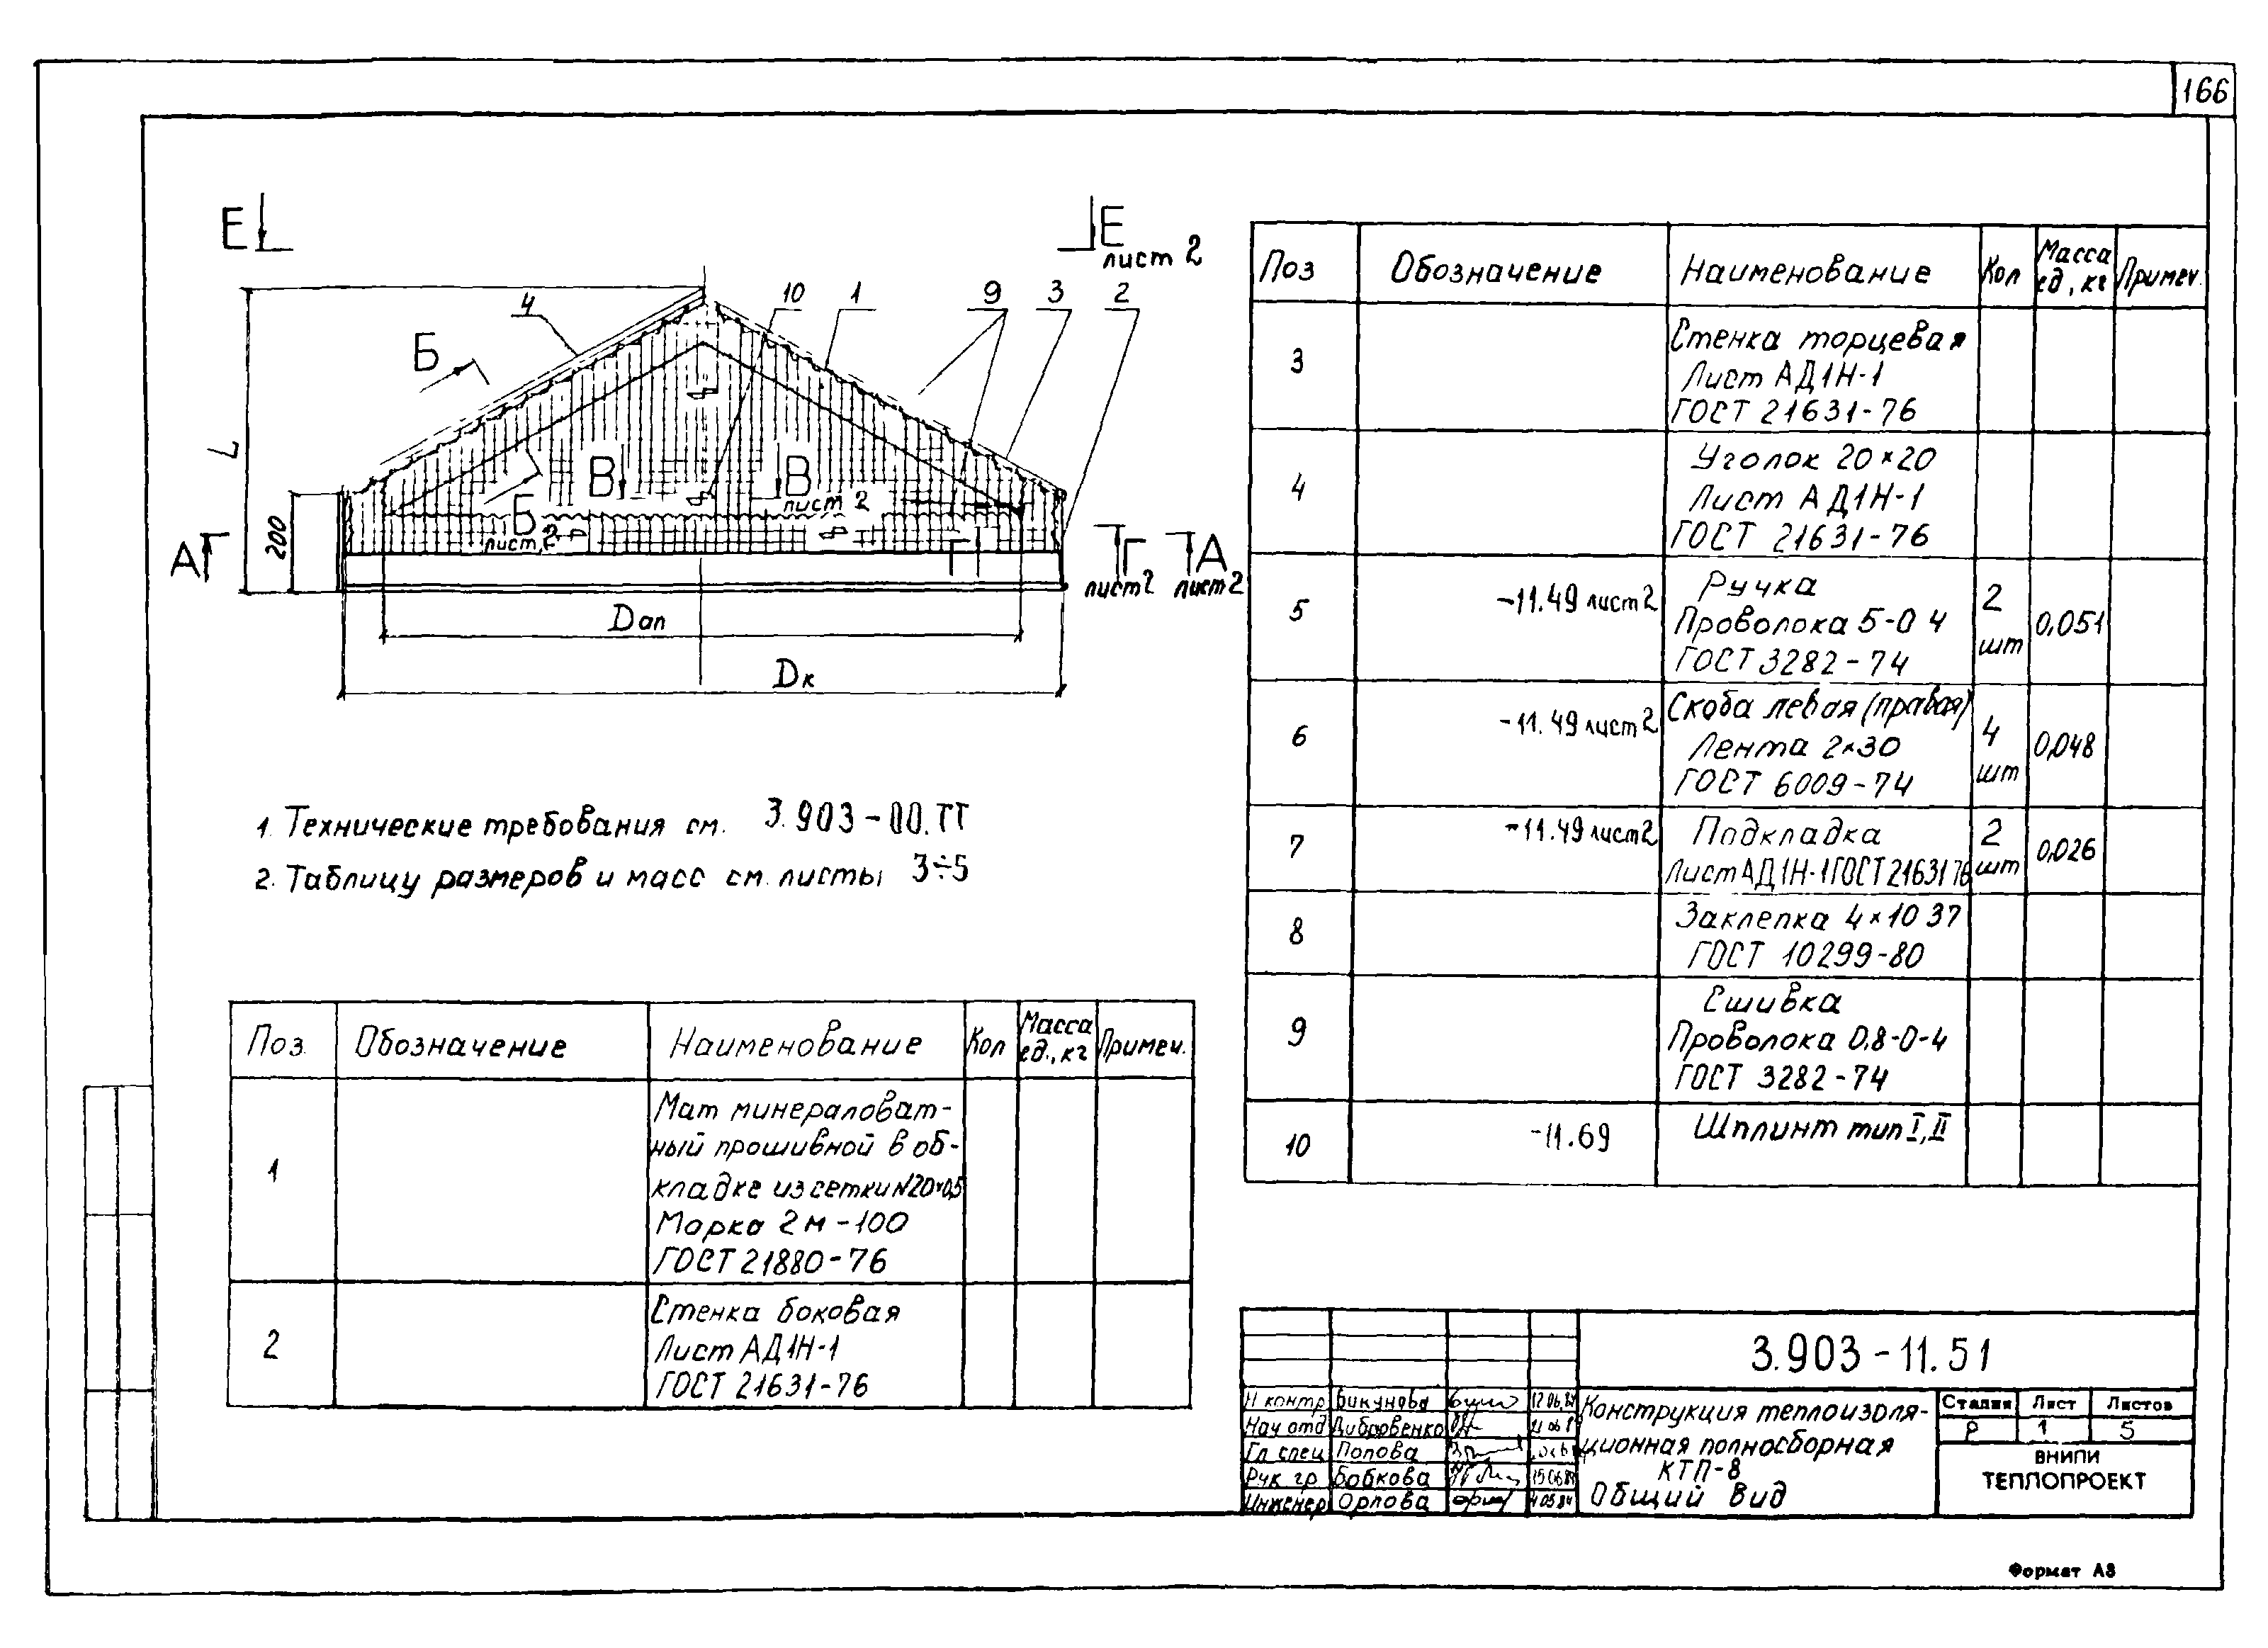 166
Е
Е
лист 2
4
10
1
9
3
2
Б
L
В
В
лист 2
Б
лист 2
200
А
Г
Г
лист 2
А
лист 2
Dап
Dк
1. Технические требования см. 3.903-00.ТТ
2. Таблицу размеров и масс см. листы 3÷5
Поз. Обозначение Наименование Кол Масса ед., кг Примеч.
1
Мат минераловат-
ный прошивной в об-
кладке из сетки №20×0,5
Марка 2м-100
ГОСТ 21880-76
2
Стенка боковая
Лист АД1Н-1
ГОСТ 21631-76
Поз Обозначение Наименование Кол Масса ед., кг Примеч.
3
Стенка торцевая
Лист АД1Н-1
ГОСТ 21631-76
4
Уголок 20×20
Лист АД1Н-1
ГОСТ 21631-76
5 -11.49 лист 2
Ручка
Проволока 5-0 4
ГОСТ 3282-74
2 шт 0,051
6 -11.49 лист 2
Скоба левая (правая)
Лента 2×30
ГОСТ 6009-74
4 шт 0,048
7 -11.49 лист 2
Подкладка
Лист АД1Н-1 ГОСТ 21631 76
2 шт 0,026
8
Заклепка 4×10 37
ГОСТ 10299-80
9
Сшивка
Проволока 0,8-0-4
ГОСТ 3282-74
10 -11.69 Шплинт тип I, II
3.903-11.51
Н контр Бикунова 12 06.84
Нач отд Дибровенко
Гл спец Попова
Рук гр. Бобкова 15.06.84
Инженер Орлова 05 84
Конструкция теплоизоля-
ционная полносборная
КТП-8
Общий вид
Стадия Лист Листов
Р 1 5
ВНИПИ
ТЕПЛОПРОЕКТ
Формат А3